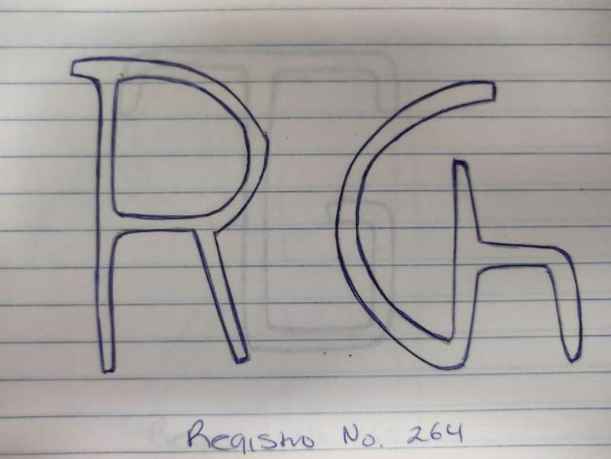 RG
Registro No. 264